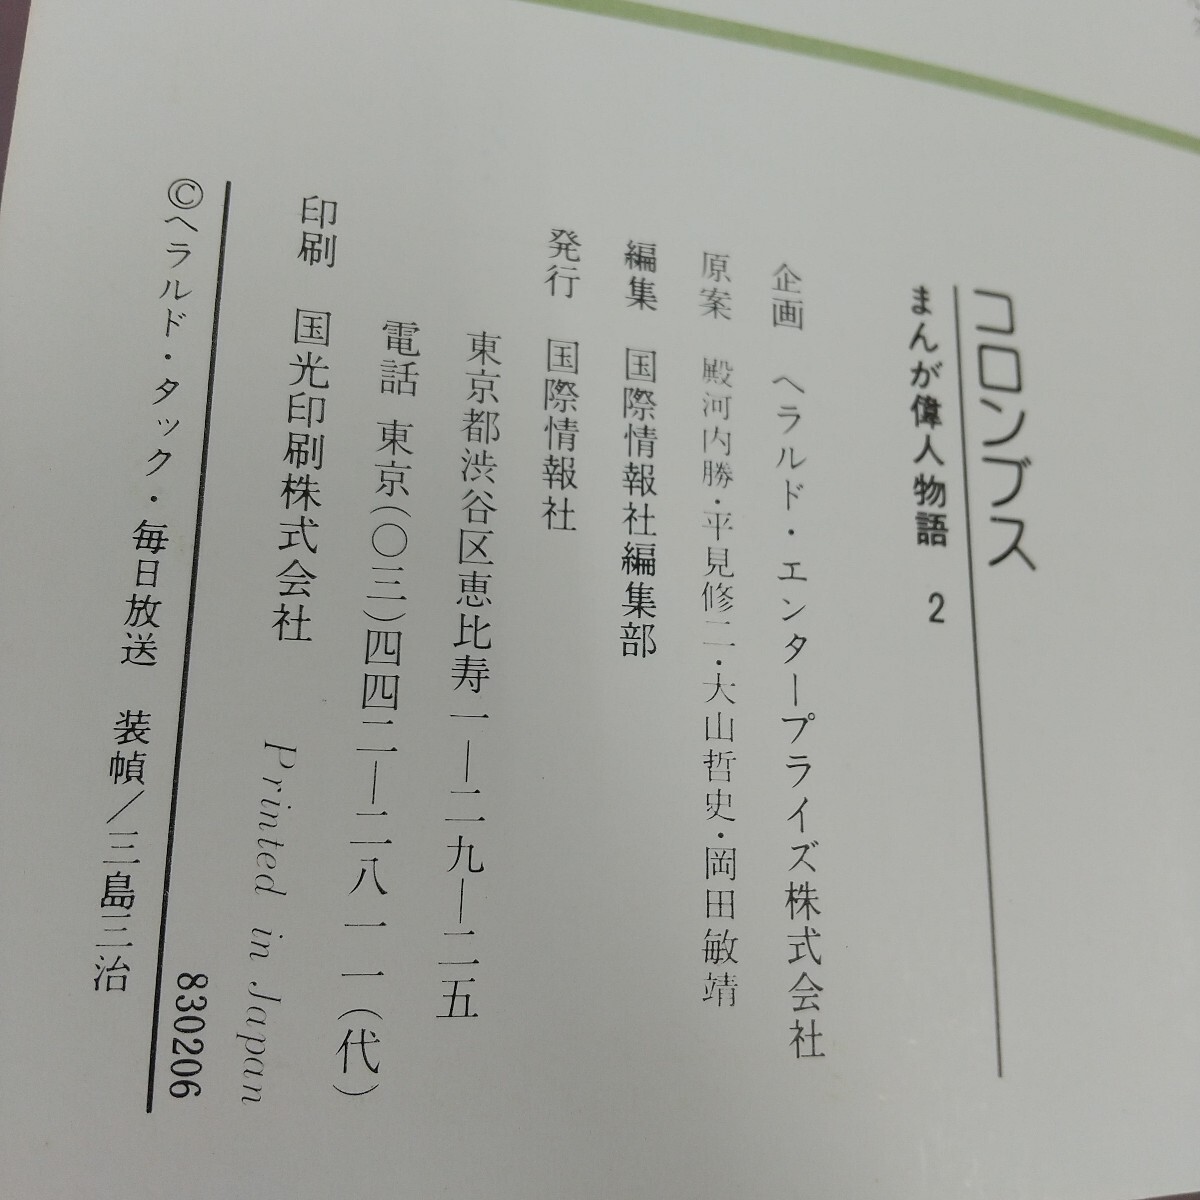 コロンブス
まんが偉人物語 2
企画 ヘラルド・エンタープライズ株式会社
原案 殿河内勝・平見修二・大山哲史・岡田敏靖
編集 国際情報社編集部
発行 国際情報社
東京都渋谷区恵比寿一―二九―二五
電話 東京(〇三)四四二―二八一一(代)
印刷 国光印刷株式会社
Printed in Japan
©ヘラルド・タック・毎日放送 装幀/三島三治
830206